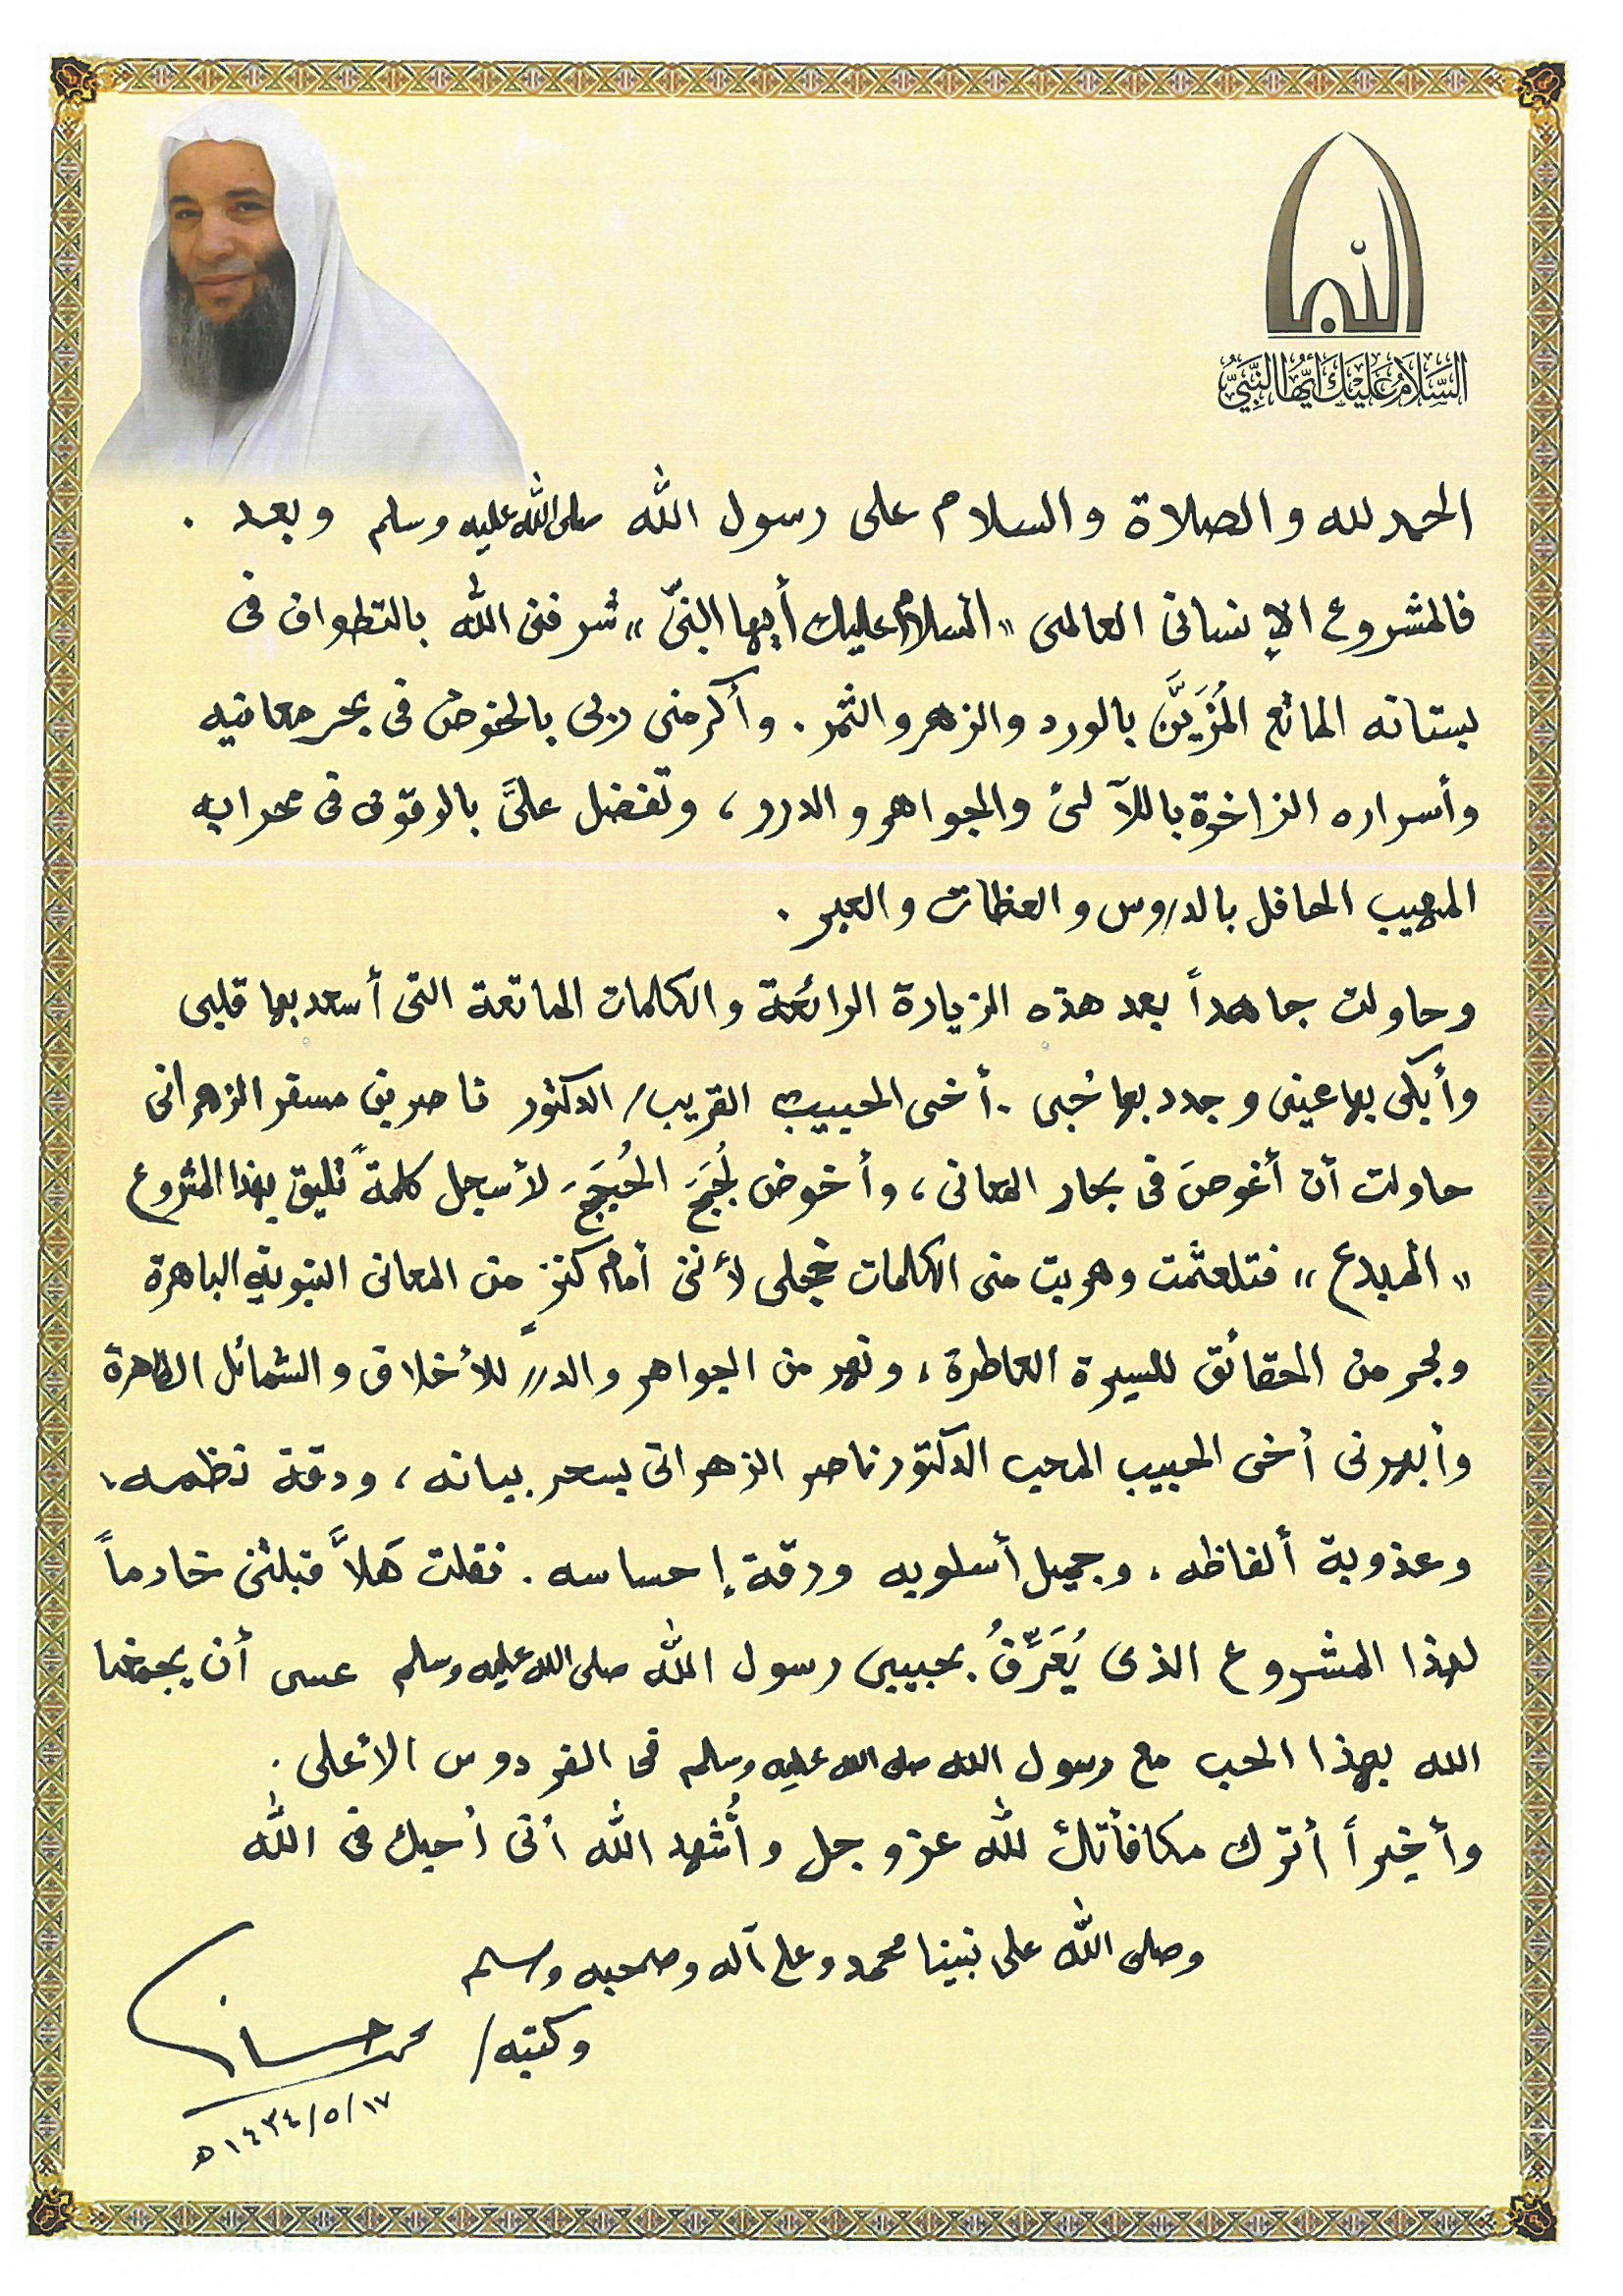 السَّلَامُ عَلَيْكَ أَيُّهَا النَّبِيُّ
الحمد لله والصلاة والسلام على رسول الله صلى الله عليه وسلم وبعد .
فالمشروع الإنسانى العالمى "السلام عليك أيها النبىّ" شرفنى الله بالتطواف فى
بستانه الماتع المُزَيَّن بالورد والزهر والثمر . وأكرمنى ربى بالخوض فى بحر معانيه
وأسراره الزاخرة باللآلئ والجواهر والدرر ، وتفضل علىَّ بالوقوف فى محرابه
المهيب الحافل بالدروس والعظات والعبر .
وحاولت جاهداً بعد هذه الزيارة الرائعة والكلمات الماتعة التى أسعد بها قلبى
وأبكى بها عينى وجدد بها حُبى . أخى الحبيب القريب / الدكتور ناصر بن مسفر الزهرانى
حاولت أن أغوصَ فى بحار المعانى ، وأخوض لُجَجَ الحُجَجَ لأسجل كلمةً تليق بهذا المشروع
"المبدع" فتلعثمت وهربت منى الكلمات خجلى لأننى أمام كنزٍ من المعانى النبوية الباهرة
وبحر من الحقائق للسيرة العاطرة ، ونهر من الجواهر والدرر للأخلاق والشمائل الطاهرة
وأبهرنى أخى الحبيب المحب الدكتور ناصر الزهرانى بسحر بيانه ، ودقة نظمه ،
وعذوبة ألفاظه ، وجميل أسلوبه ورقة إحساسه . فقلت هَلاَّ قبلتنى خادماً
لهذا المشروع الذى يُعَرِّفُ بحبيبى رسول الله صلى الله عليه وسلم عسى أن يجمعنا
الله بهذا الحب مع رسول الله صلى الله عليه وسلم فى الفردوس الأعلى .
وأخيراً أترك مكافأتك لله عز وجل وأُشهد الله أنى أحبك فى الله
وصلى الله على نبينا محمد وعلى آله وصحبه وسلم
وكتبه / محمد حسان
١٧/٥/١٤٣٤ه